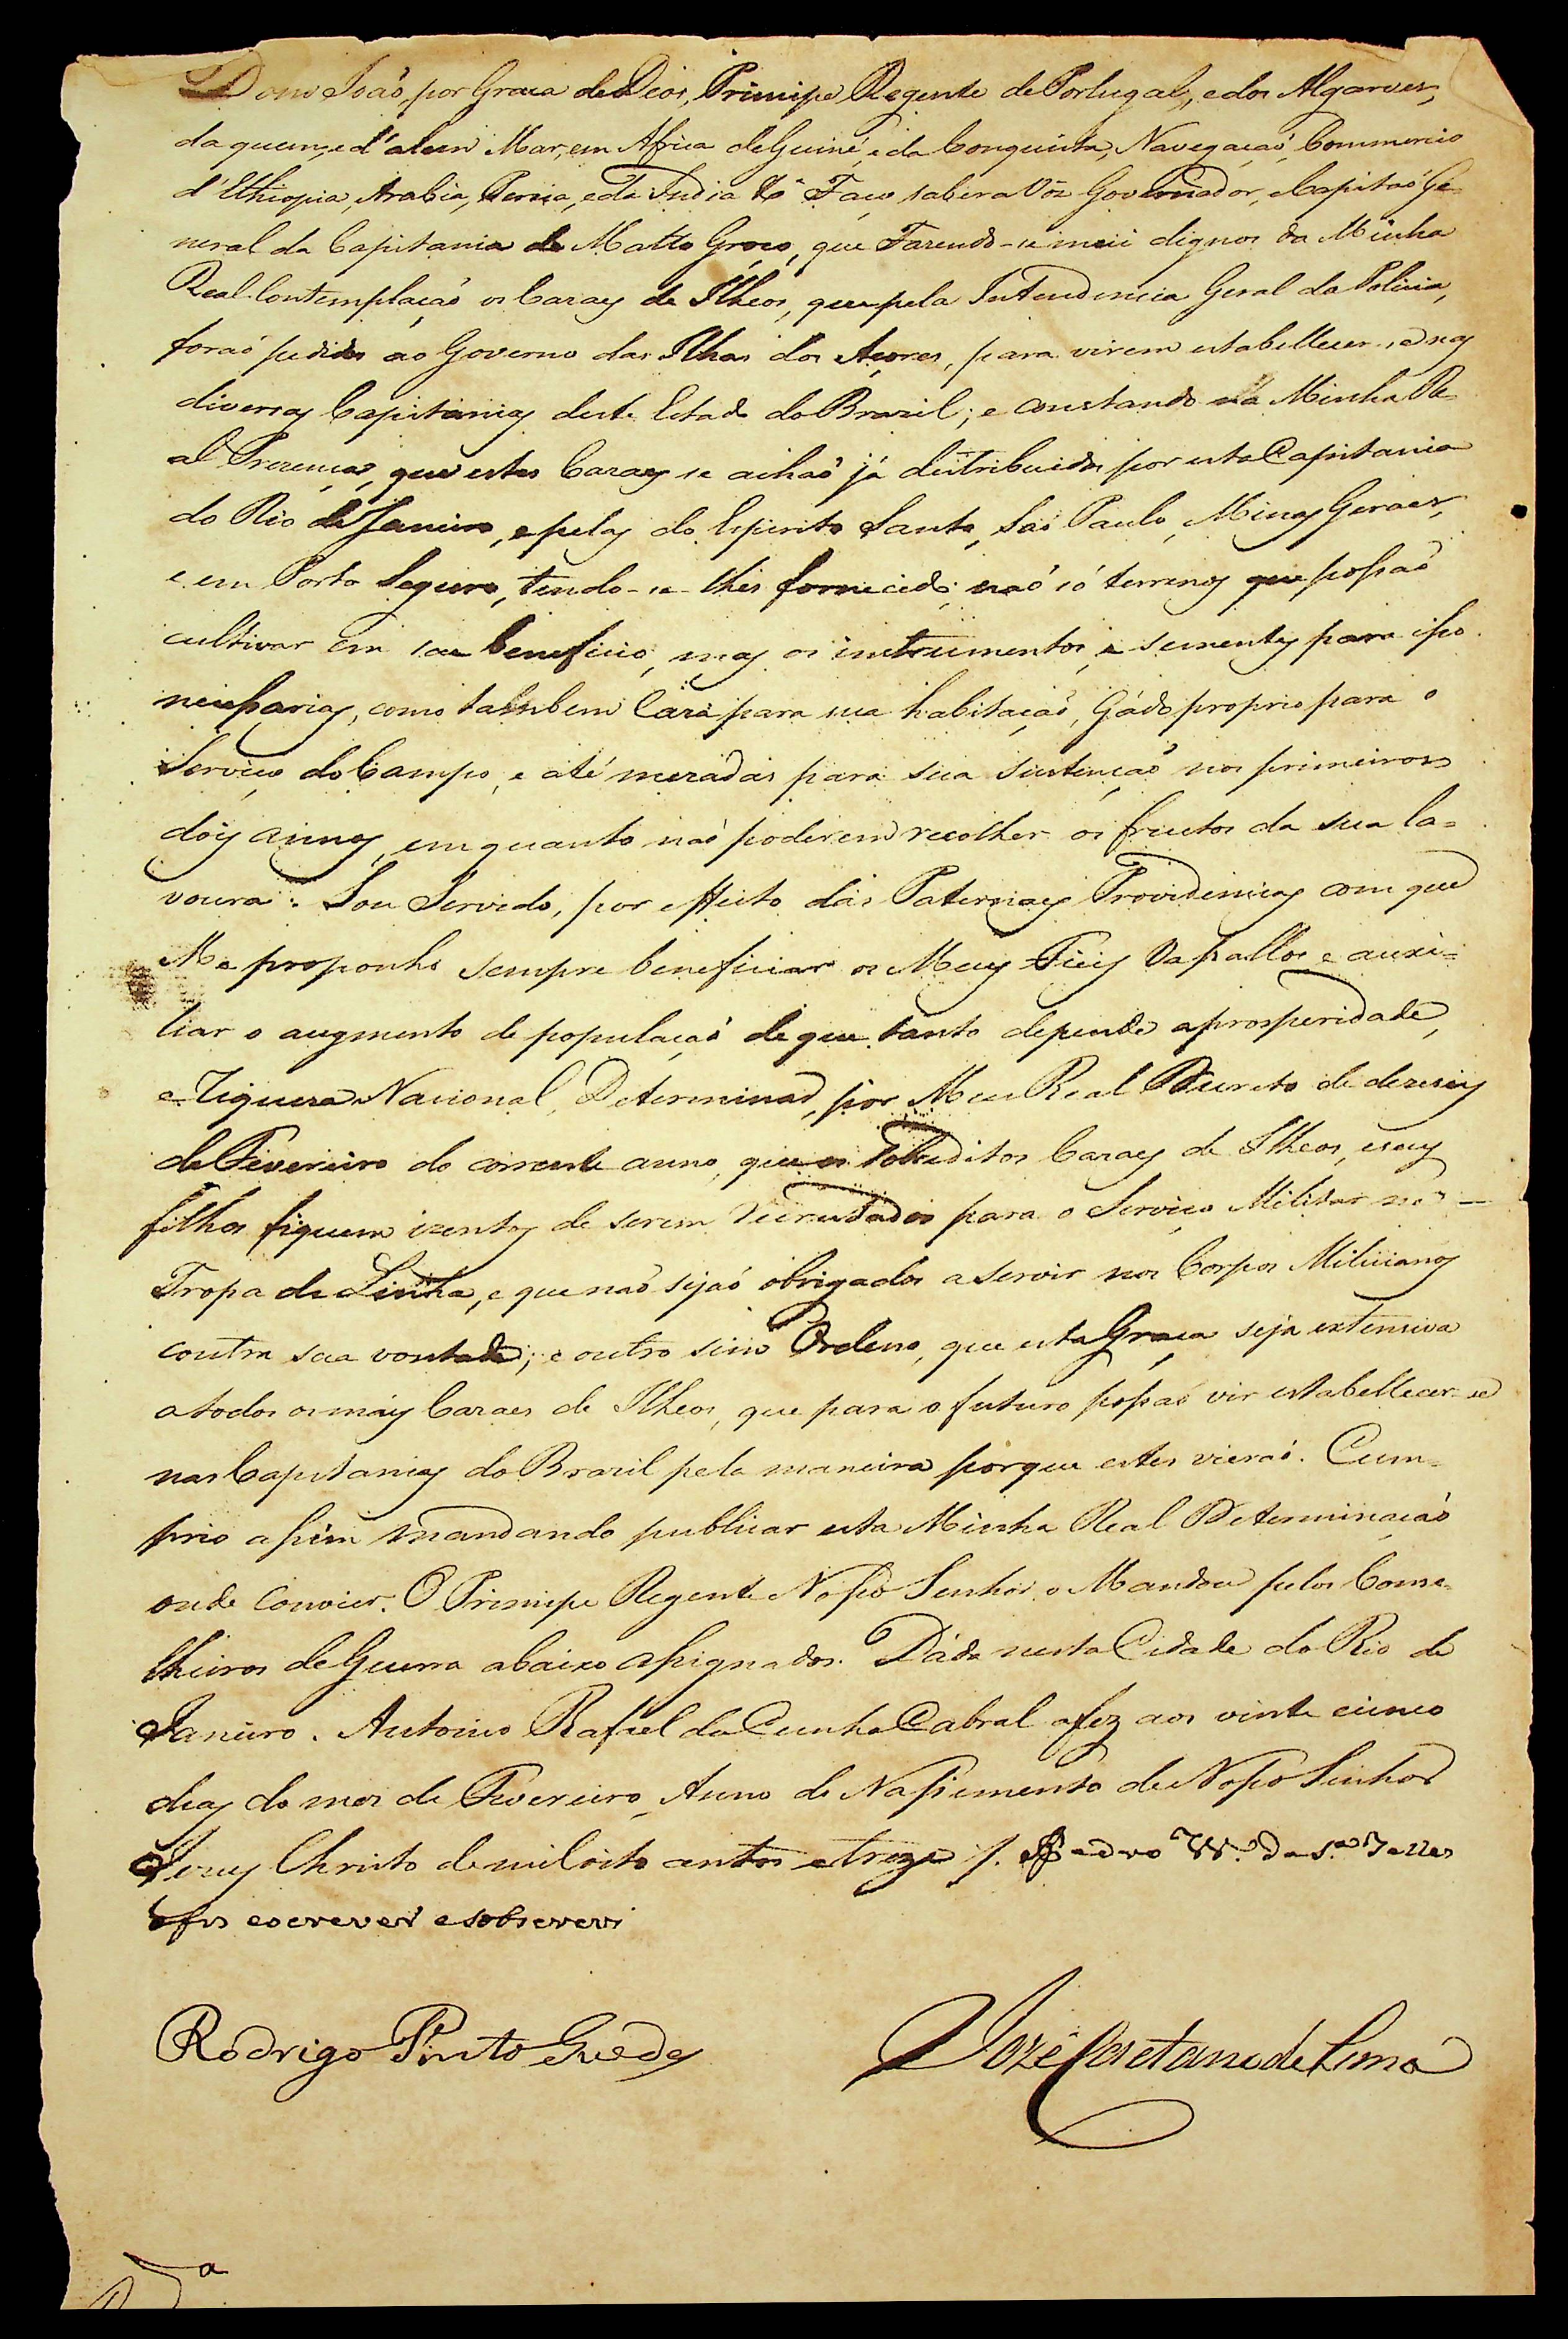 Dom Joaõ, por Graça de Deos, Principe Regente de Portugal, e dos Algarves,
daquem, e d'alem Mar, em Africa de Guiné, e da Conquista, Navegaçaõ, Commercio
d'Ethiopia, Arabia, Persia, e da India &ª Faço saber a Vós Governador, e Capitaõ Ge-
neral da Capitania de Matto Groço, que Fazendo-se mui dignos da Minha
Real Contemplaçaõ os Cazaes de Ilheos, que pela Intendencia Geral da Policia,
foraõ pedidos ao Governo das Ilhas dos Açores, para virem estabellecer-se nas
diversas Capitanias deste Estado do Brazil; e constando na Minha Re-
al Prezença, que estes Cazaes se achaõ já destribuidos por esta Capitania
do Rio de Janeiro, e pelas do Espirito Santo, Saõ Paulo, Minas Geraes,
e em Porto Seguro, tendo-se-lhes fornecido, naõ só terrenos que possaõ
cultivar em seu beneficio, mas os instrumentos, e sementes para isso
necessarias, como tambem Caza para sua habitaçaõ, Gádo proprio para o
Serviço do Campo, e até mezadas para sua sustençaõ nos primeiros
dois annos, em quanto naõ poderem recolher os fructos da sua la-
voura: Sou Servido, por effeito das Paternaes Providencias com que
Me proponho sempre beneficiar os Meus Fieis Vassallos e auxi-
liar o augmento de populaçaõ de que tanto depende a prosperidade,
e Riqueza Nacional, Determinar, por Meu Real Decreto de dezeseis
de Fevereiro do corrente anno, que os sobreditos Cazaes de Ilheos, e seus
filhos fiquem izentos de serem recrutados para o Serviço Militar na
Tropa de Linha, e que naõ sejaõ obrigados a servir nos Corpos Milicianos
contra sua vontade; e outro sim Ordeno, que esta Graça seja extensiva
a todos os mais Cazaes de Ilheos, que para o futuro possaõ vir estabellecer-se
nas Capitanias do Brazil pela maneira porque estes vieraõ. Cum-
prio assim mandando publicar esta Minha Real Determinaçaõ
onde convier. O Principe Regente Nosso Senhor o Mandou pelos Conse-
lheiros de Guerra abaixo assignados. Dáda nesta Cidade do Rio de
Janeiro. Antonio Rafael da Cunha Cabral a fez aos vinte cinco
dias do mez de Fevereiro Anno do Nassimento de Nosso Senhor
Jezus Christo de mil oito centos e treze /. Pedro Vr.ª da S.ª Telles
a fis escrever e sobscrevi
Rodrigo Pinto Guedes
Jozé Caetano de Lima